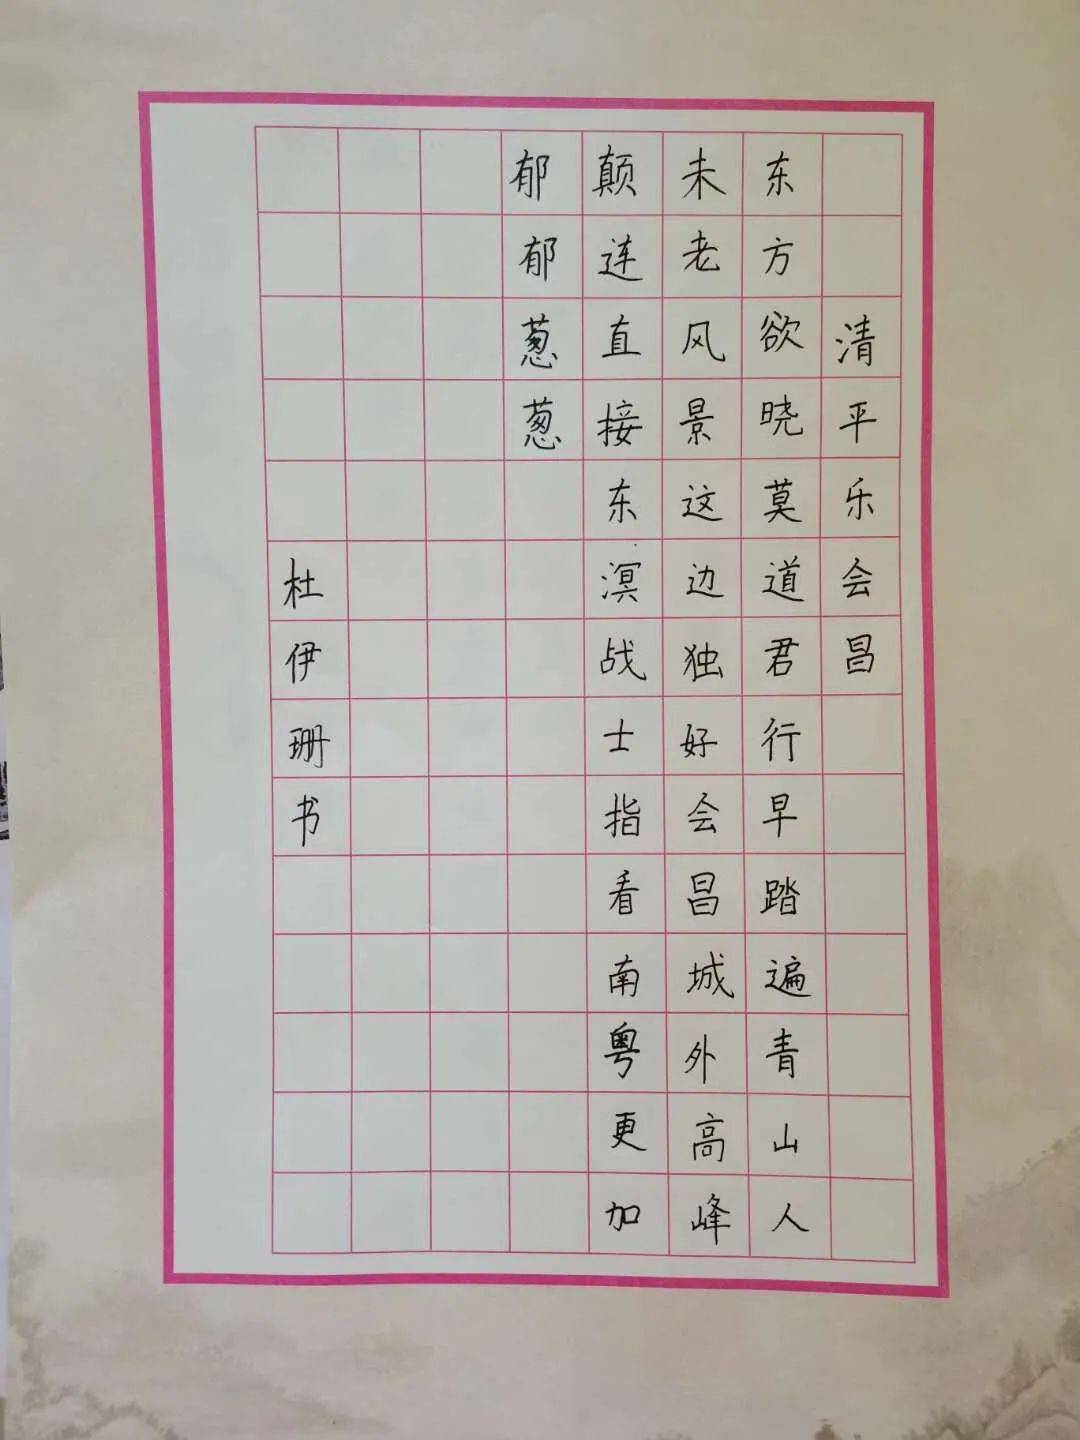 清平乐会昌
东方欲晓莫道君行早踏遍青山人
未老风景这边独好会昌城外高峰
颠连直接东溟战士指看南粤更加
郁郁葱葱
杜伊珊书